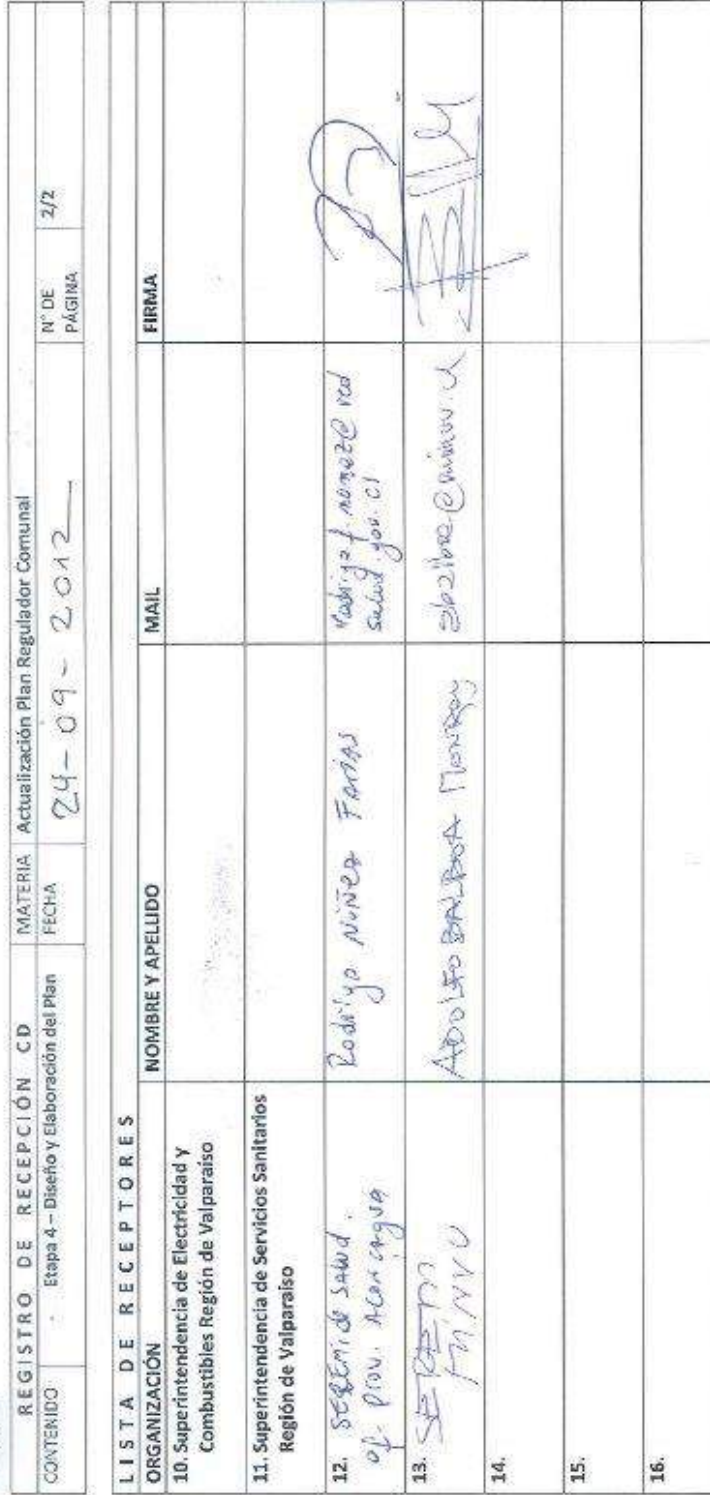 REGISTRO DE RECEPCIÓN CD
MATERIA Actualización Plan Regulador Comunal
CONTENIDO Etapa 4 – Diseño y Elaboración del Plan
FECHA 24-09-2012
N° DE PÁGINA 2/2
LISTA DE RECEPTORES
ORGANIZACIÓN NOMBRE Y APELLIDO MAIL FIRMA
10. Superintendencia de Electricidad y
Combustibles Región de Valparaíso
11. Superintendencia de Servicios Sanitarios
Región de Valparaíso
12. SEREMI de SALUD. Rodrigo NUÑEZ FARIAS
of. prov. Aconcagua
salud.gov.cl
13. SEREMI ADOLFO BALBOA MONRROY
MINVU
14.
15.
16.